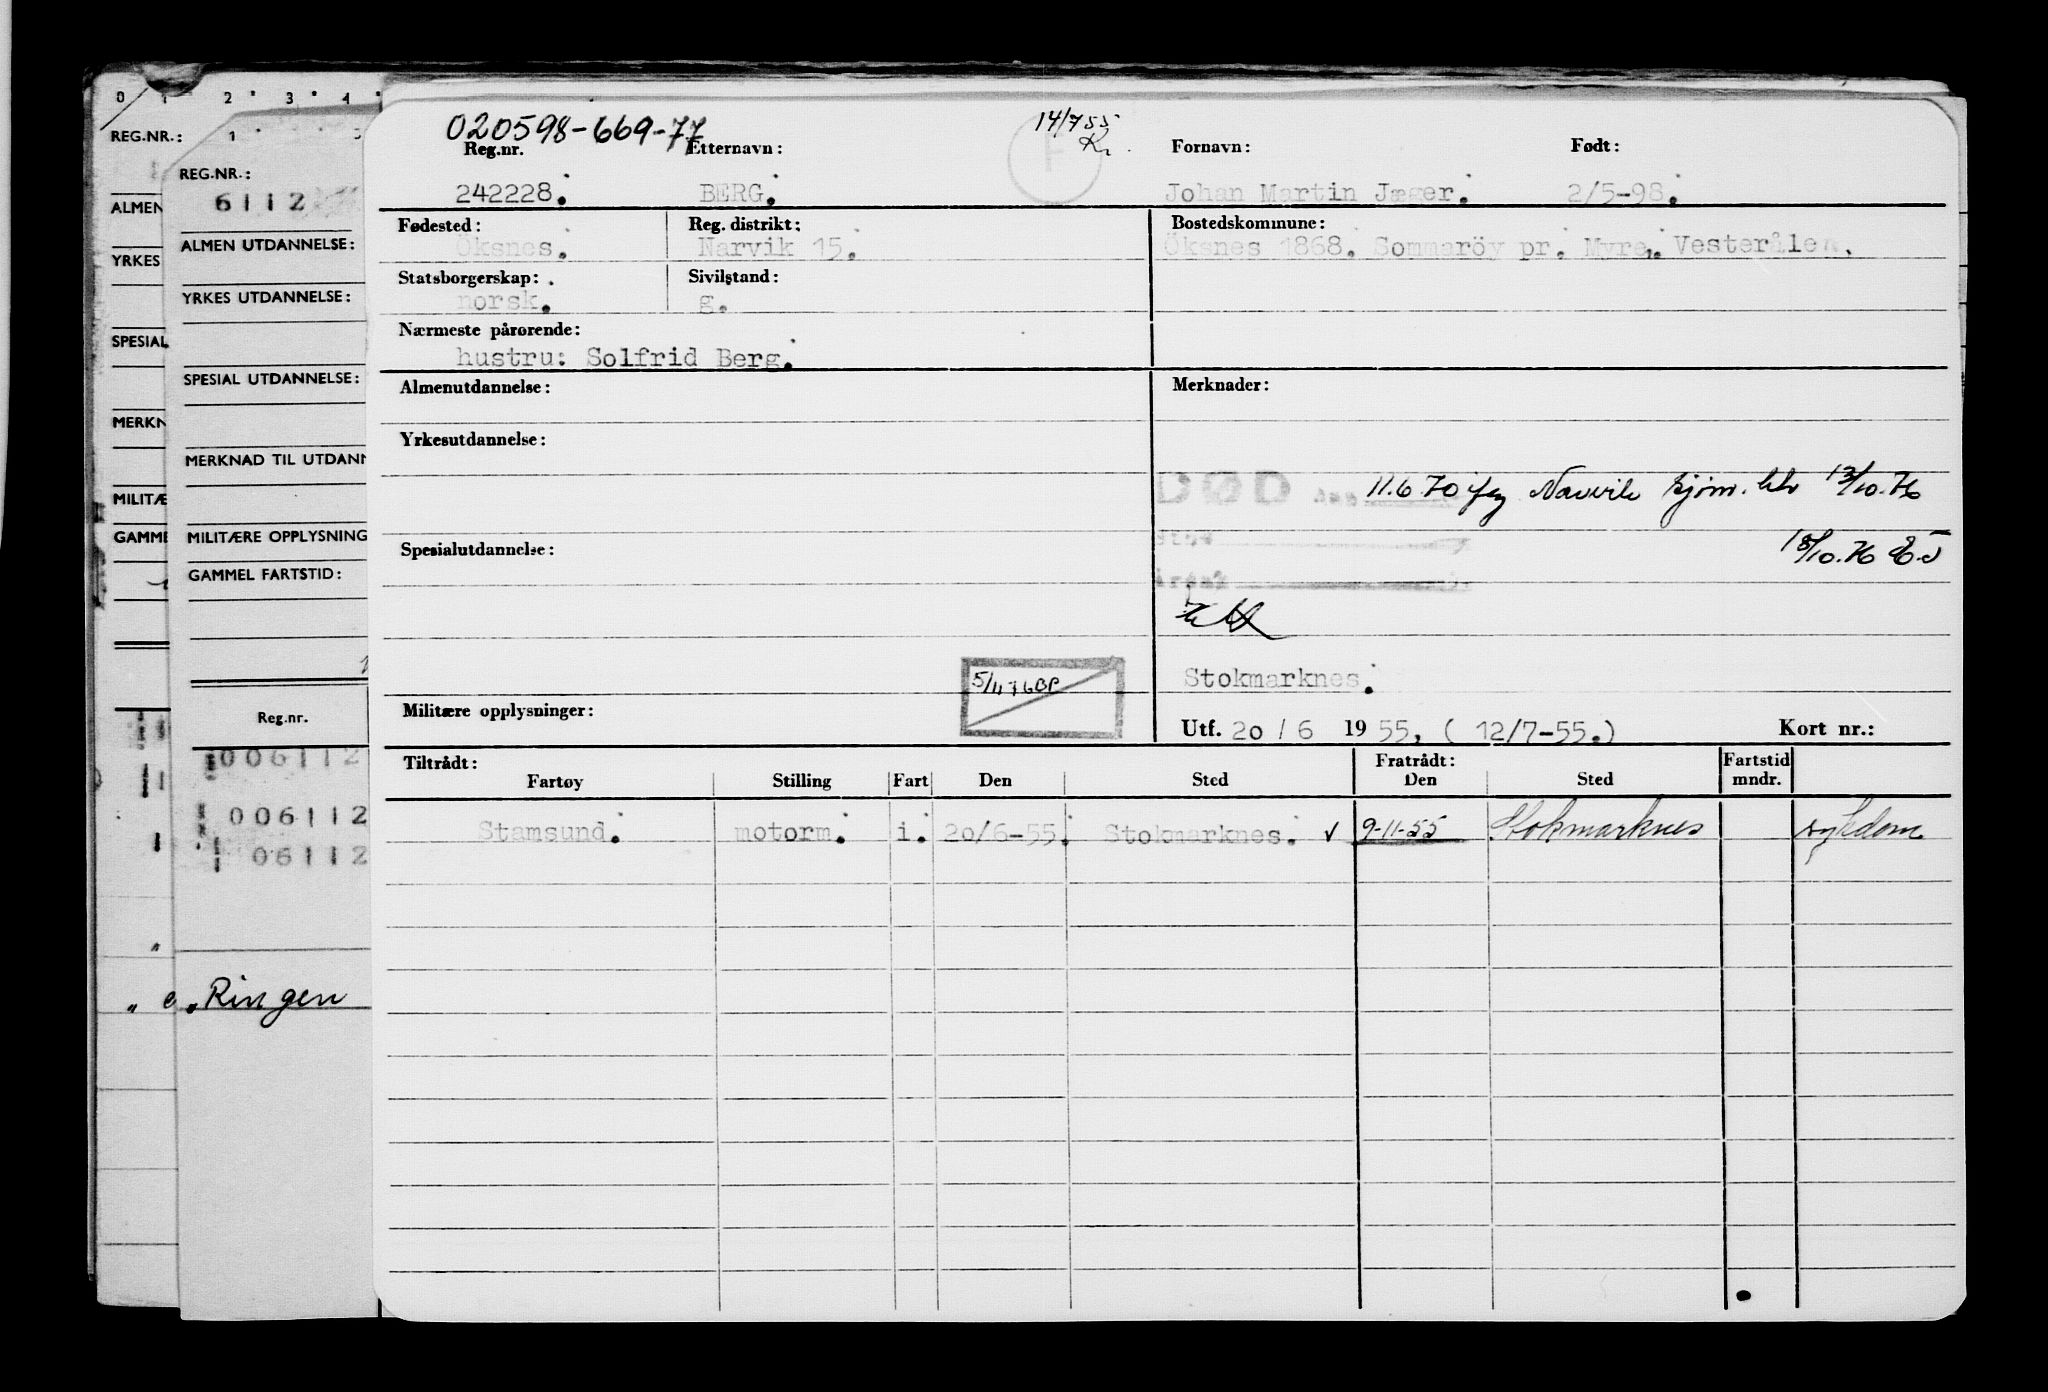 0 1 2 3 4
REG.NR.:
ALMEN
YRKES
SPESIAL
MERKN
MILITÆ
GAMME
1
REG.NR.:
6112
ALMEN UTDANNELSE:
YRKES UTDANNELSE:
SPESIAL UTDANNELSE:
MERKNAD TIL UTDANN
MILITÆRE OPPLYSNING
GAMMEL FARTSTID:
Reg.nr.
006112
006112
06112
" e "Ringen
020598-669-77 14/7 55
Reg.nr. Etternavn: Fornavn: Født:
242228. BERG. Johan Martin Jæger. 2/5-98.
Fødested: Reg. distrikt: Bostedskommune:
Öksnes. Narvik 15. Öksnes 1868. Sommaröy pr. Myre, Vesterålen.
Statsborgerskap: Sivilstand:
norsk. g.
Nærmeste pårørende:
hustru: Solfrid Berg.
Almenutdannelse: Merknader:
Yrkesutdannelse:
DØD 11.6.70 Narvik sjøm. 12/10.76
Spesialutdannelse: 18/10.76
Årsak
Stokmarknes.
5/11 76 BP
Militære opplysninger: Utf. 20 / 6 1955. ( 12/7-55.) Kort nr.:
Tiltrådt: Fratrådt: Fartstid
Fartøy Stilling Fart Den Sted Den Sted mndr.
Stamsund. motorm. i. 20/6-55. Stokmarknes. v 9-11-55 Stokmarknes sykdom